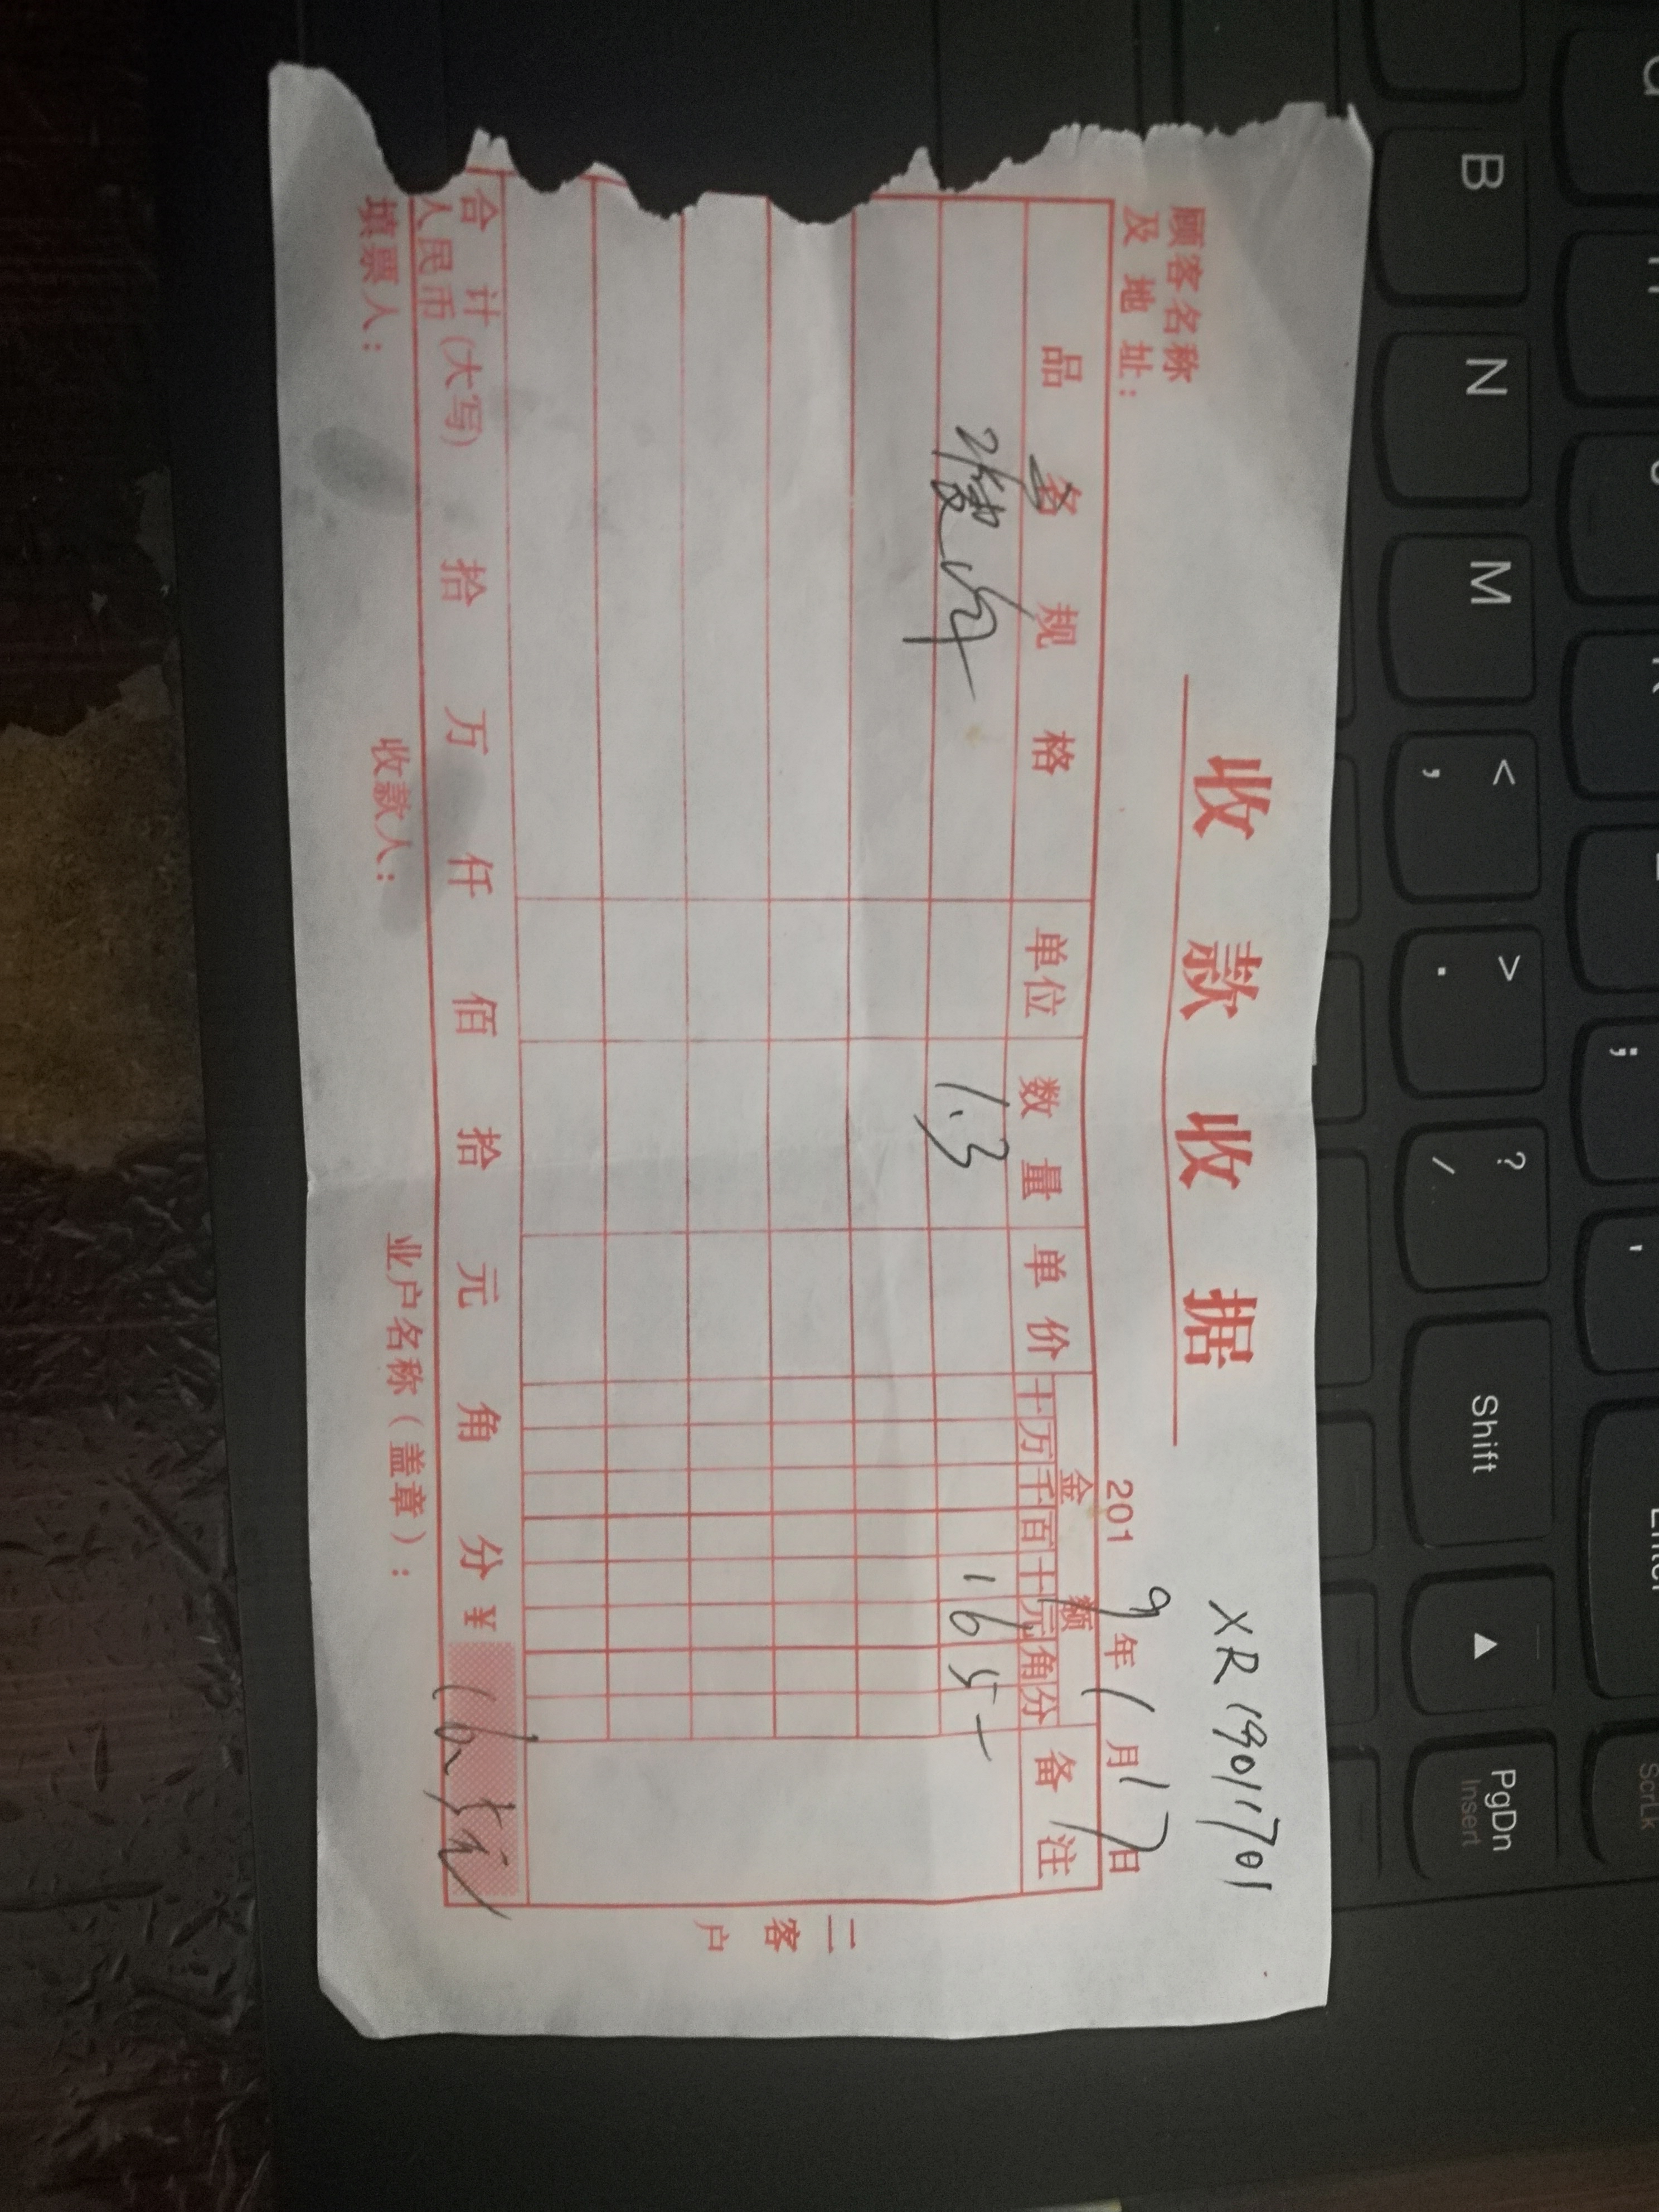 Enter
ScrLk
; '
B N M < , > . ? / Shift ▲ PgDn
Insert
收款收据
XR19011701
顾客名称
及地址:
2019年1月17日
品名规格 单位 数量 单价 金额 备注
十万千百十元角分
瘦肉 1.3 165-
二客户
合计
人民币(大写) 拾 万 仟 佰 拾 元 角 分 ¥ 16.5元
填票人: 收款人: 业户名称(盖章):